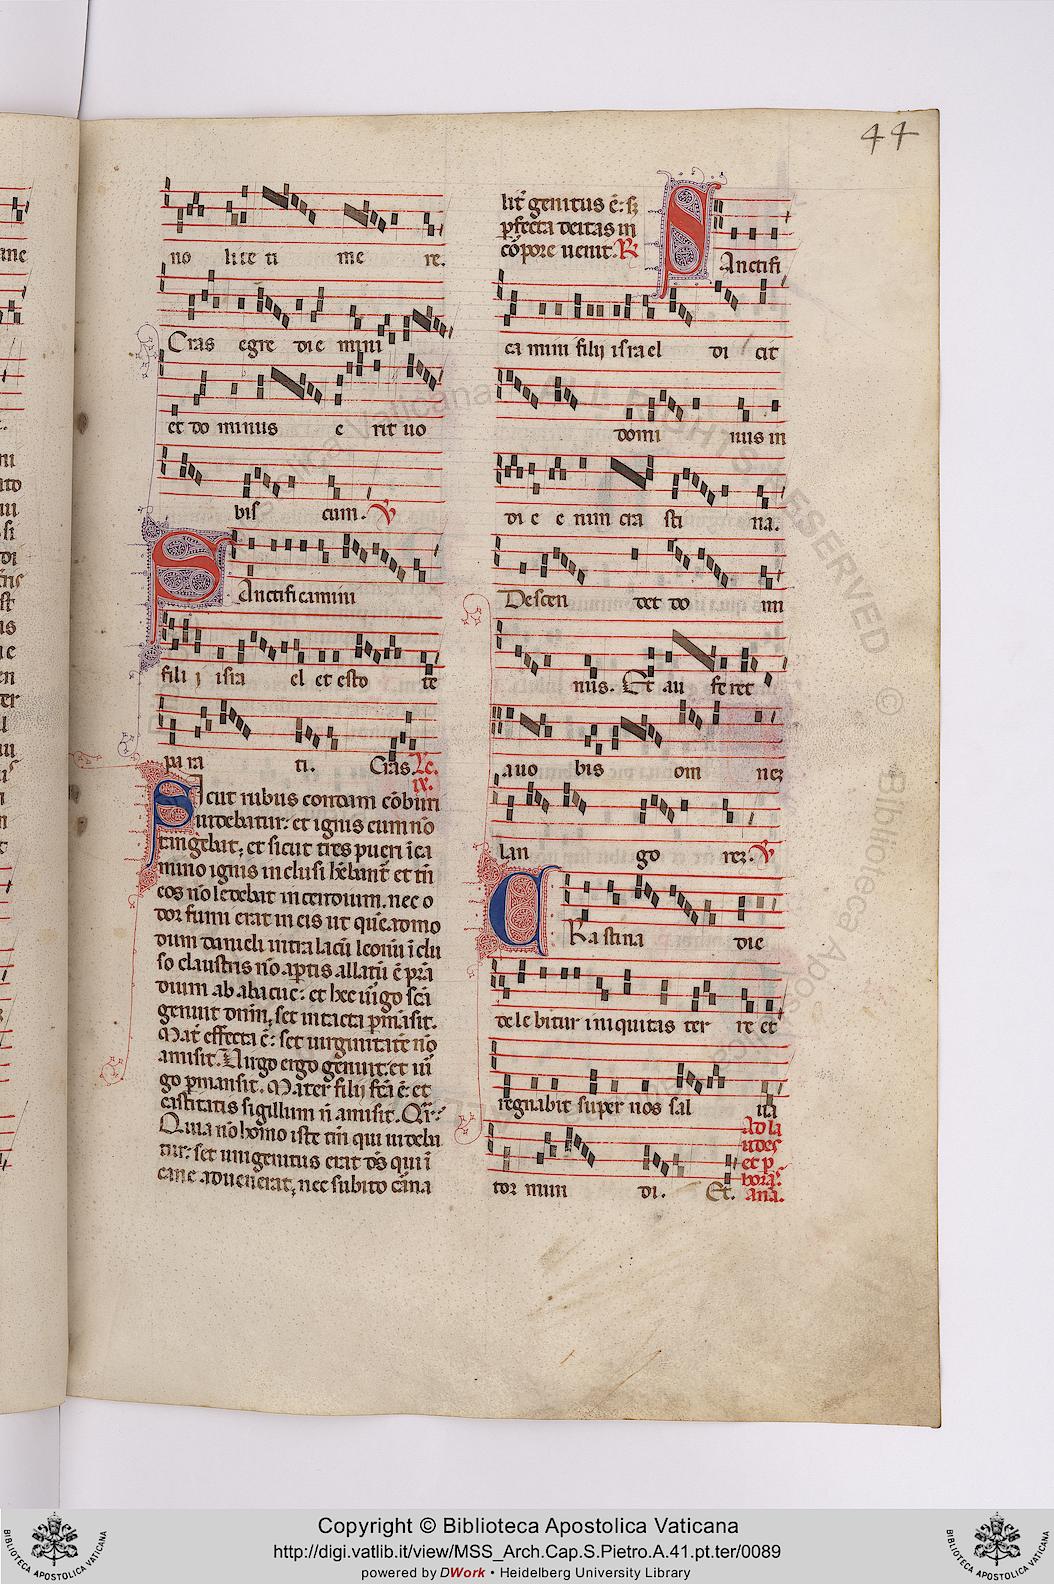 44
no lite ti me re.
Cras egre die mini
et do minus e rit uo
bis cum. ℣
Sanctificamini
filij isra el et esto te
pa ra ti. Cras. Lc.
ix.
Sicut rubus contam cōbur
uidebatur: et ignis eum nō
tingebat, et sicut tres pueri ī ca
mino ignis inclusi
eos nō ledebat incendium. nec o
dor fumi erat in eis
dum danieli intra lacū leonū ī clu
so claustris nō aptis allatū ē prā
dium ab abacuc: et hec uir̄go scā
genuit dn̄m, set intacta pmāsit.
Mat̄ effecta ē: set uirginitatē nō
amisit. Uirgo ergo genuit: et uir̄
go pmansit. Mater filij fcā ē: et
castitatis sigillum n̄ amisit. Qr̄:
Quia nō homo iste tm̄ qui uidebā
tur: set unigenitus erat dś qui ī
carne aduenerat, nec subito cārna
lit̄ genitus ē: sꝫ
pfecta deitas in
cōpore uenit. ℟
Sanctifi
ca mini filij israel di cit
domi nus in
di e e nim cra sti na.
Descen det do mi
nus. Et au feret
a uo bis om nez
lan go rez. ℣
CRastina die
delebitur iniquitas ter re et
regnabit super nos sal ua
tor mun di. Et.
Ad la
udes
et p
horas
ana.
ALL RIGHTS RESERVED © Biblioteca Apostolica Vaticana
Copyright © Biblioteca Apostolica Vaticana
http://digi.vatlib.it/view/MSS_Arch.Cap.S.Pietro.A.41.pt.ter/0089
powered by DWork • Heidelberg University Library
BIBLIOTECA APOSTOLICA VATICANA
BIBLIOTECA APOSTOLICA VATICANA